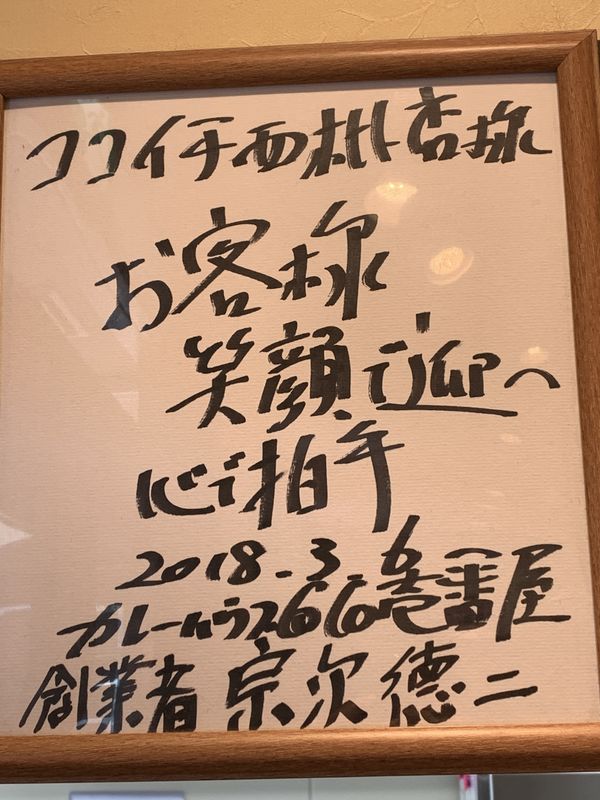 ココイチ西村杏様
お客様
笑顔で迎へ
心で拍手
2018.3.6
カレーハウスCoCo壱番屋
創業者 宗次德二